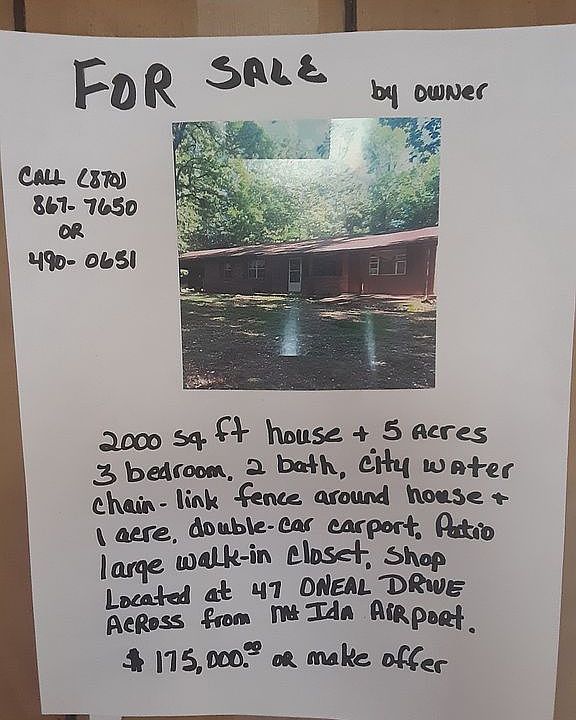 FOR SALE by OWNER
CALL (870)
867-7650
OR
490-0651
2000 sq. ft house + 5 Acres
3 bedroom, 2 bath, city water
chain-link fence around house +
1 acre, double-car carport, Patio
large walk-in closet, Shop
Located at 47 ONEAL DRIVE
ACROSS from Mt IDA AIRPORT.
$ 175,000.00 OR make offer